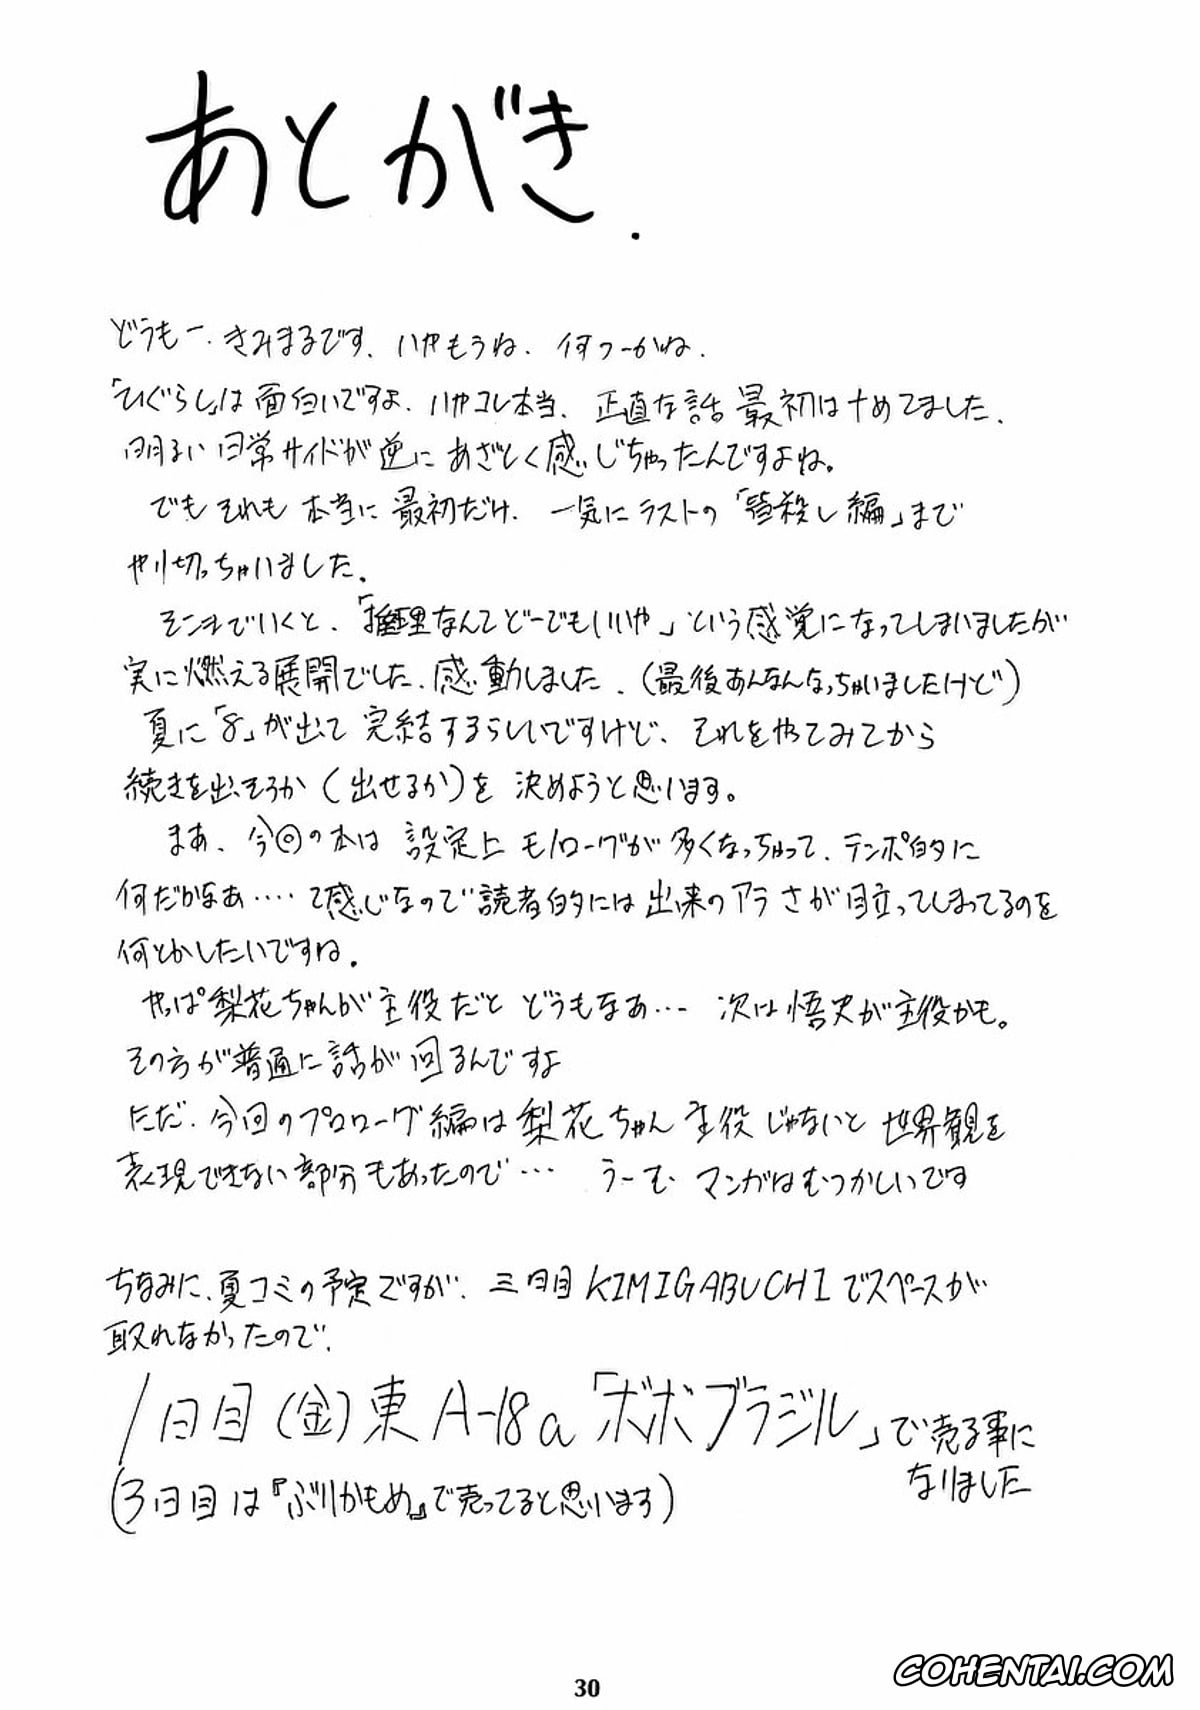 あとがき.
どうもー. きみまるです. いやもうね. 何つーかね.
「ひぐらし」は面白いですよ. いやコレ本当. 正直な話 最初はナめてました.
明るい日常サイドが逆にあざとく感じちゃったんですよね。
でもそれも本当に最初だけ. 一気にラストの「皆殺し編」まで
やり切っちゃいました.
そこまでいくと、「推理なんてどーでもいいや」という感覚になってしまいましたが
実に燃える展開でした. 感動しました. (最後あんなんなっちゃいましたけど)
夏に「8」が出て完結するらしいですけど、それをやってみてから
続きを出そうか(出せるか)を決めようと思います。
まあ、今回の本は設定上モノローグが多くなっちゃって、テンポ的に
何だかなあ‥‥って感じなので読者的には出来のアラさが目立ってしまってるのを
何とかしたいですね.
やっぱ梨花ちゃんが主役だとどうもなあ… 次は悟史が主役かも。
その方が普通に話が回るんですよ
ただ、今回のプロローグ編は梨花ちゃん主役じゃないと世界観を
表現できない部分もあったので… うーむ マンガはむつかしいです
ちなみに、夏コミの予定ですが、三日目KIMIGABUCHIでスペースが
取れなかったので、
1日目(金)東A-18a「ボボブラジル」で売る事に
なりました
(3日目は『ぶりかもめ』で売ってると思います)
30
COHENTAI.COM